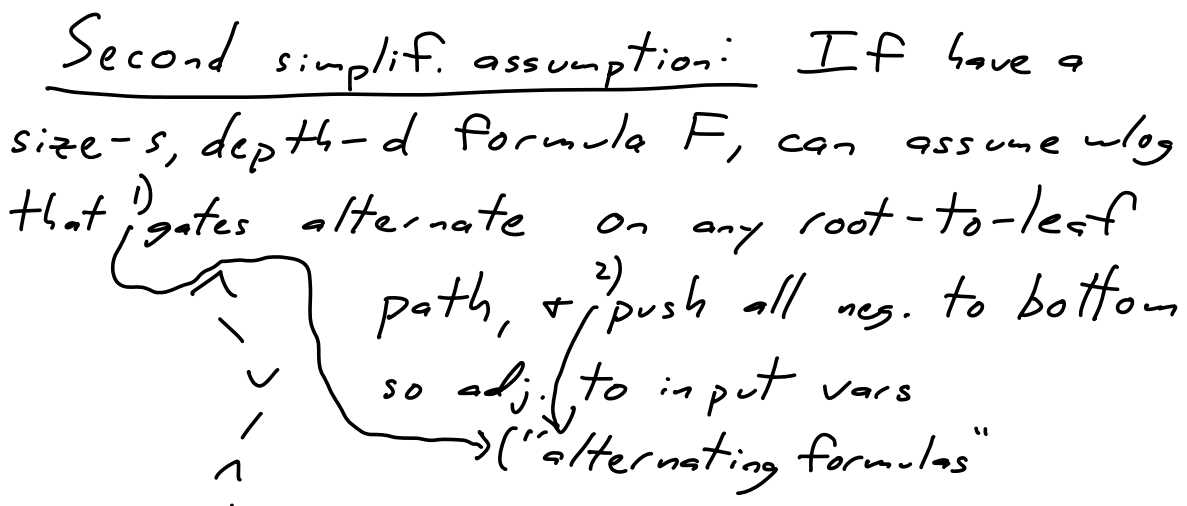 Second simplif. assumption: If have a
size-s, depth-d formula F, can assume wlog
that 1) gates alternate on any root-to-leaf
path, + 2) push all neg. to bottom
so adj. to input vars
("alternating formulas"
∧
∨
∧